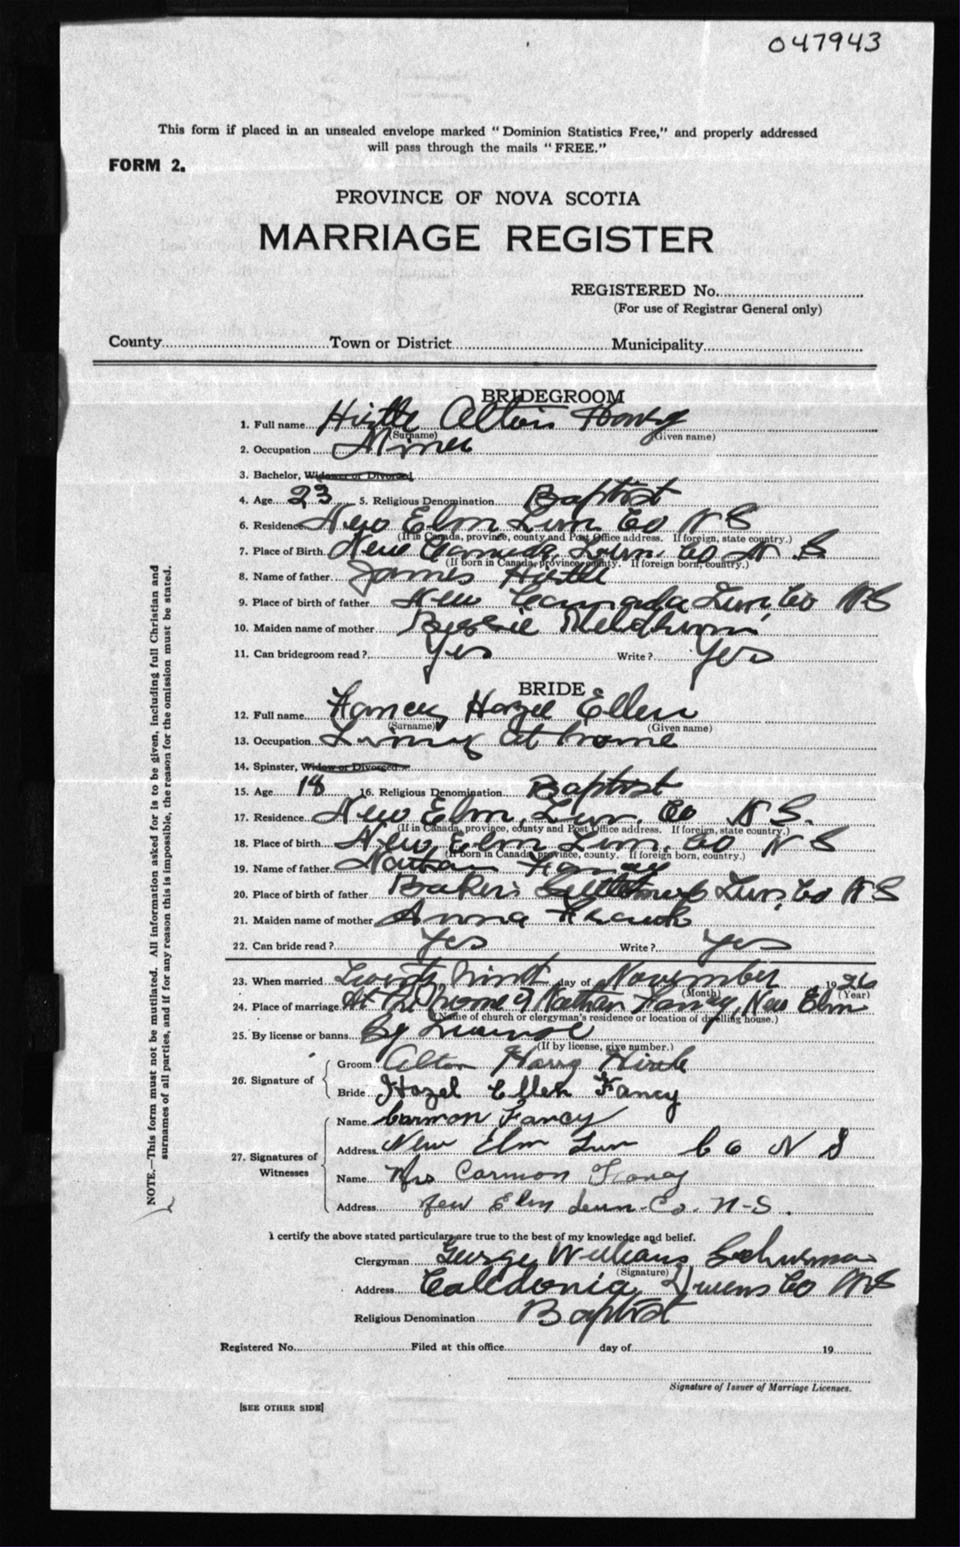 047943
This form if placed in an unsealed envelope marked "Dominion Statistics Free," and properly addressed
will pass through the mails "FREE."
FORM 2.
PROVINCE OF NOVA SCOTIA
MARRIAGE REGISTER
REGISTERED No.
(For use of Registrar General only)
County Town or District Municipality
BRIDEGROOM
1. Full name Hirtle Alton Harry
(Surname) (Given name)
2. Occupation Miner
3. Bachelor, Widower or Divorced
4. Age 23 5. Religious Denomination Baptist
6. Residence New Elm Lun Co N S
(If in Canada, province, county and Post Office address. If foreign, state country.)
7. Place of Birth New Canada Lun. Co N S
(If born in Canada, province county. If foreign born, country.)
8. Name of father James Hirtle
9. Place of birth of father New Cannada Lun Co N S
10. Maiden name of mother Bessie
11. Can bridegroom read? Yes Write? Yes
BRIDE
12. Full name Fancy Hazel Ellen
(Surname) (Given name)
13. Occupation Living at home
14. Spinster, Widow or Divorced
15. Age 18 16. Religious Denomination Baptist
17. Residence New Elm, Lun. Co N S.
(If in Canada, province, county and Post Office address. If foreign, state country.)
18. Place of birth New Elm Lun. Co N S
(If born in Canada, province, county. If foreign born, country.)
19. Name of father Nathan Fancy
20. Place of birth of father Bakers Settlement Lun. Co N S
21. Maiden name of mother Anna
22. Can bride read? Yes Write? Yes
23. When married day of November 1926
(Month) (Year)
24. Place of marriage At the home of Nathan Fancy, New Elm
(Name of church or clergyman's residence or location of dwelling house.)
25. By license or banns By License
(If by license, give number.)
26. Signature of
Groom Alton Harry Hirtle
Bride Hazel Ellen Fancy
27. Signatures of Witnesses
Name Carmon Fancy
Address New Elm Lun Co N S
Name Mrs Carmon Fancy
Address New Elm Lun. Co. N-S.
I certify the above stated particulars are true to the best of my knowledge and belief.
Clergyman George William
(Signature)
Address Caledonia, Queens Co N S
Religious Denomination Baptist
Registered No. Filed at this office day of 19
Signature of Issuer of Marriage Licenses.
[SEE OTHER SIDE]
NOTE.—This form must not be mutilated. All information asked for is to be given, including full Christian and
surnames of all parties, and if for any reason this is impossible, the reason for the omission must be stated.